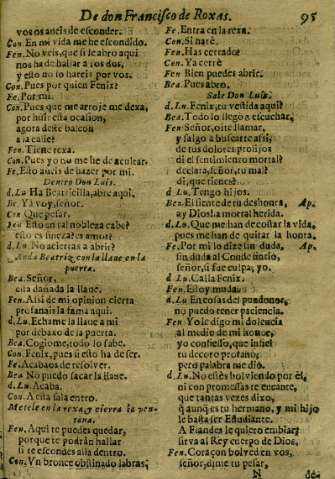 De don Francisco de Roxas. 95
vos os aueis de esconder.
Con. En mi vida me he escondido.
Fen. No veis, que si le abro aqui
nos ha de hallar a los dos,
y esto no lo hareis por vos.
Con. Pues por quien Fenix?
Fe. Por mi.
Con. Pues que me arroje me dexa,
por huir esta ocasion,
agora deste balcon
a la calle?
Fen. Tiene rexa.
Con. Pues yo no me he de
Fe. Esto aueis de hazer por mi.
Dentro Don Luis.
d. Lu. Ha Beatricilla, abre aqui.
Be. Ya voy, señor.
Con. Que pesar.
Fen. Esto en tal nobleza cabe?
esto es fineza? es amor?
d. Lu. No aciertas a abrir?
Anda Beatriz con la llaue en la
puerta.
Bea. Señor,
està dañada la llaue.
Fen. Assi de mi opinion cierta
profanais la fama aqui.
d. Lu. Echame la llaue a mi
por debaxo de la puerta.
Bea. Cogiome, todo lo sabe.
Con. Fenix, pues si esto ha de ser.
Fe. Acabaos de resolver.
Bea. No puedo sacar la llaue.
d. Lu. Acaba.
Con. A esta sala entro.
Metese en la rexa, y cierra la ven-
tana.
Fen. Aqui te puedes quedar,
porque te podràn hallar
si te escondes allà dentro.
Con. Vn bronce obstinado labras;
Fe. Entra en la rexa.
Con. Si harè.
Fen. Has cerrado?
Con. Ya cerrè
Fen. Bien puedes abrir.
Bea. Pues abro.
Sale Don Luis.
d. Lu. Fenix, tu vestida aqui?
Bea. Todo lo llego a escuchar,
Fen. Señor, oite llamar,
y salgo a buscarte assi,
de tus dolores prolijos
di el sentimiento mortal?
declara, señor, tu mal?
di, que tiene?
d. Lu. Tengo hijos.
Bea. El siente de tu deshonra, Ap.
ay Dios! a mortal herida.
d. Lu. Que me han de costar la vida,
pues me han de quitar la honra.
Fe. Por mi lo dize sin duda, Ap.
sin duda al Conde
señor, si fue culpa, yo.
d. Lu. Calla Fenix.
Fen. Estoy muda.
d. Lu. En cosas del pundonor,
no puedo tener paciencia.
Fen. Yo le digo mi dolencia
al medio de mi honor,
yo confiesso, que infiel
tu decoro profano;
pero palabra me diò.
d. Lu. No estès bolviendo por èl,
ni con promessas te encante,
que tantas vezes dixo,
q̃ aunq̃ es tu hermano, y mi hijo
le basta ser Estudiante.
A Flandes le quiero embiar;
sirva al Rey cuerpo de Dios,
Fen. Coraçon bolved en vos,
señor, dime tu pesar,
N de-